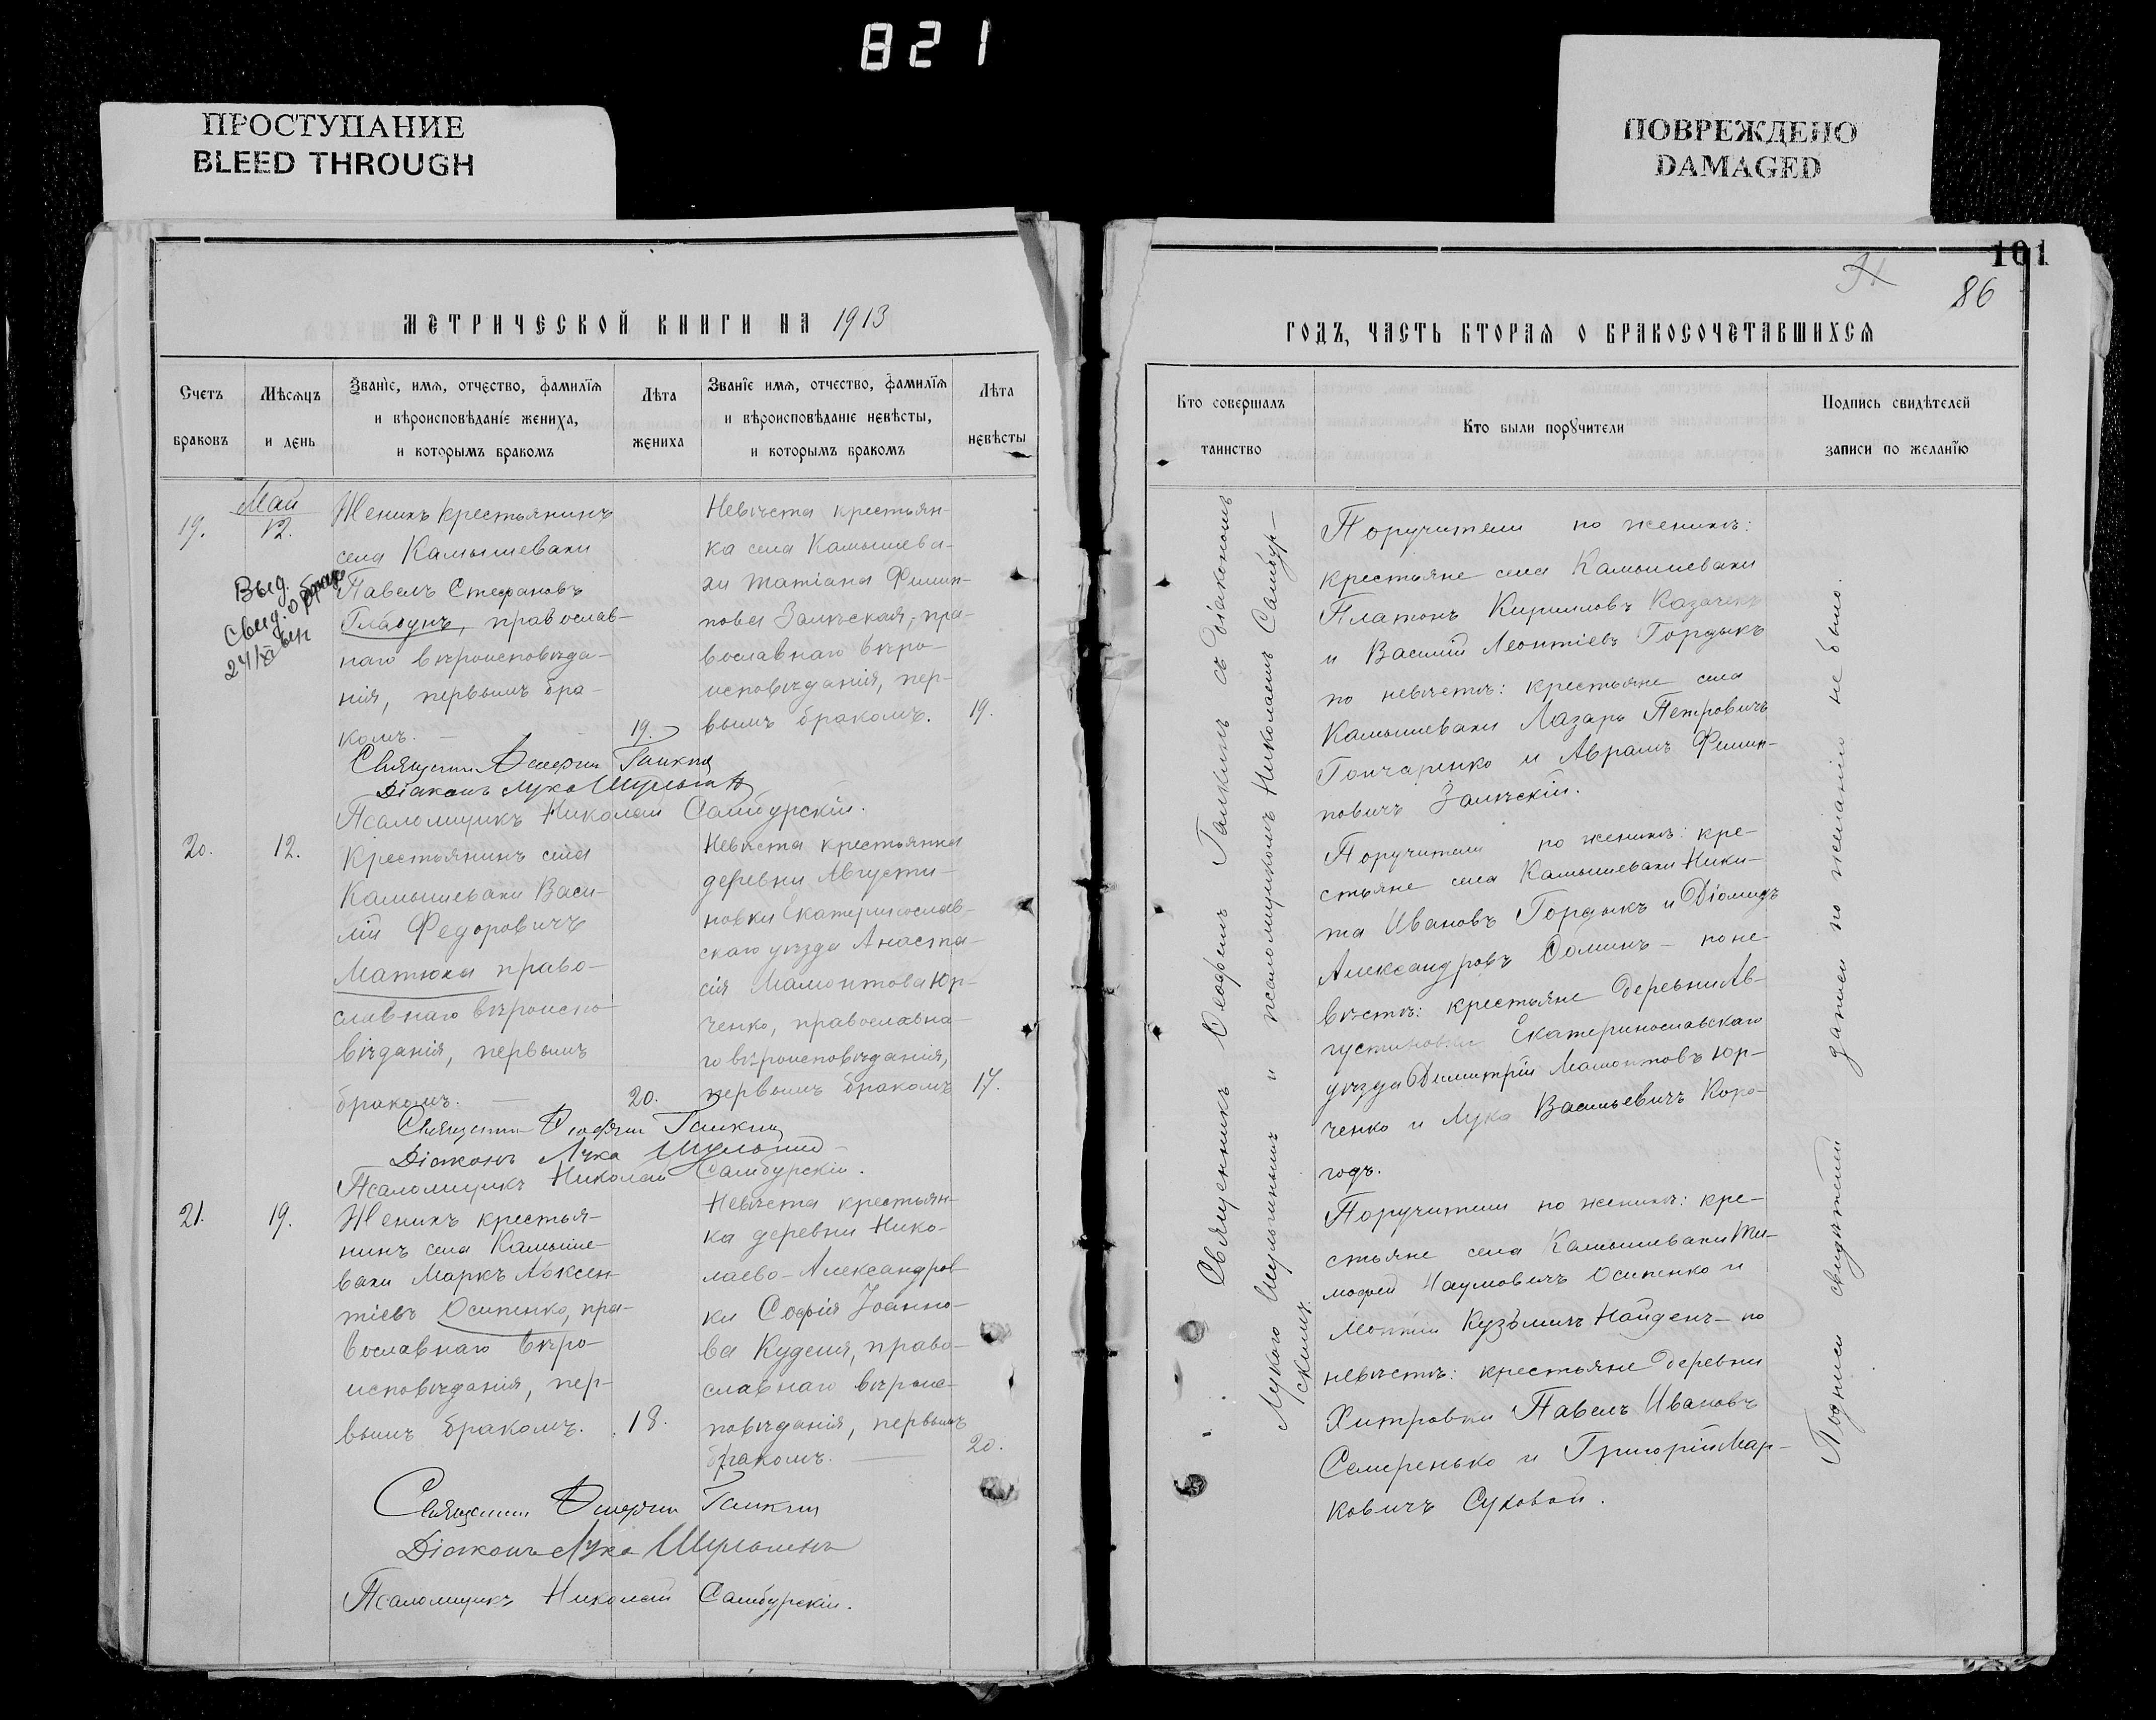 821
ПРОСТУПАНИЕ
BLEED THROUGH
ПОВРЕЖДЕНО
DAMAGED
МЕТРИЧЕСКОЙ КНИГИ НА 1913
Счетъ браковъ
Мѣсяцъ и день
Званіе, имя, отчество, фамилія
и вѣроисповѣданіе жениха,
и которымъ бракомъ
Лѣта жениха
Званіе имя, отчество, фамилія
и вѣроисповѣданіе невѣсты,
и которымъ бракомъ
Лѣта невѣсты
19.
Май
12.
Выд.
Свид. о браке
24/XI
Женихъ крестьянинъ
села Камышевахи
Павелъ Стефановъ
Глабунъ, православ-
наго вѣроисповѣда-
нія, первымъ бра-
комъ. —
19.
Невѣста крестьян-
ка села Камышева-
хи Татіана Филип-
пова Заляская, пра-
вославнаго вѣро-
исповѣданія, пер-
вымъ бракомъ.
19.
Священникъ Галкинъ
Діаконъ Лука Шульгинъ
Псаломщикъ Николай Самбурскій.
20.
12.
Крестьянинъ села
Камышевахи Васи-
лій Федоровичъ
Матюха право-
славнаго вѣроиспо-
вѣданія, первымъ
бракомъ. —
20.
Невѣста крестьянка
деревни Августи-
новки Екатеринослав-
скаго уѣзда Анаста-
сія Мамонтова Юр-
ченко, православна-
го вѣроисповѣданія,
первымъ бракомъ
17.
Священникъ Галкинъ
Діаконъ Лука Шульгинъ
Псаломщикъ Николай Самбурскій.
21.
19.
Женихъ крестья-
нинъ села Камыше-
вахи Маркъ Авксен-
тіевъ Осипенко, пра-
вославнаго вѣро-
исповѣданія, пер-
вымъ бракомъ.
18.
Невѣста крестьян-
ка деревни Нико-
лаево-Александров-
ки Софія Іоанно-
ва Куделя, право-
славнаго вѣроис-
повѣданія, первымъ
бракомъ. —
20.
Священникъ Галкинъ
Діаконъ Лука Шульгинъ
Псаломщикъ Николай Самбурскій.
101
86
ГОДЪ, ЧАСТЬ ВТОРАЯ О БРАКОСОЧЕТАВШИХСЯ
Кто совершалъ
таинство
Кто были поручители
Подпись свидѣтелей
записи по желанію
Священникъ Галкинъ съ діакономъ
Лукою Шульгинымъ и псаломщикомъ Николаемъ Самбур-
скимъ.
Поручители по женихѣ:
крестьяне села Камышевахи
Платонъ Кирилловъ Казаченко
и Василій Леонтіевъ Гордыкъ
по невѣстѣ: крестьяне села
Камышевахи Лазарь Петровичъ
Гончаренко и Аврамъ Филип-
повичъ Заляскій.
Поручители по женихѣ: кре-
стьяне села Камышевахи Ники-
та Ивановъ Гордыкъ и Діомидъ
Александровъ Соминъ — по не-
вѣстѣ: крестьяне деревни Ав-
густиновки Екатеринославскаго
уѣзда Димитрій Мамонтовъ Юр-
ченко и Лука Васильевичъ Коро-
годъ.
Поручители по женихѣ: кре-
стьяне села Камышевахи Ти-
мофей Наумовичъ Осипенко и
Кузьмичъ Найденъ — по
невѣстѣ: крестьяне деревни
Хитровки Павелъ Ивановъ
Семиренько и Григорій Мар-
ковичъ Суховой.
Подписи свидѣтелей записи по желанію не было.